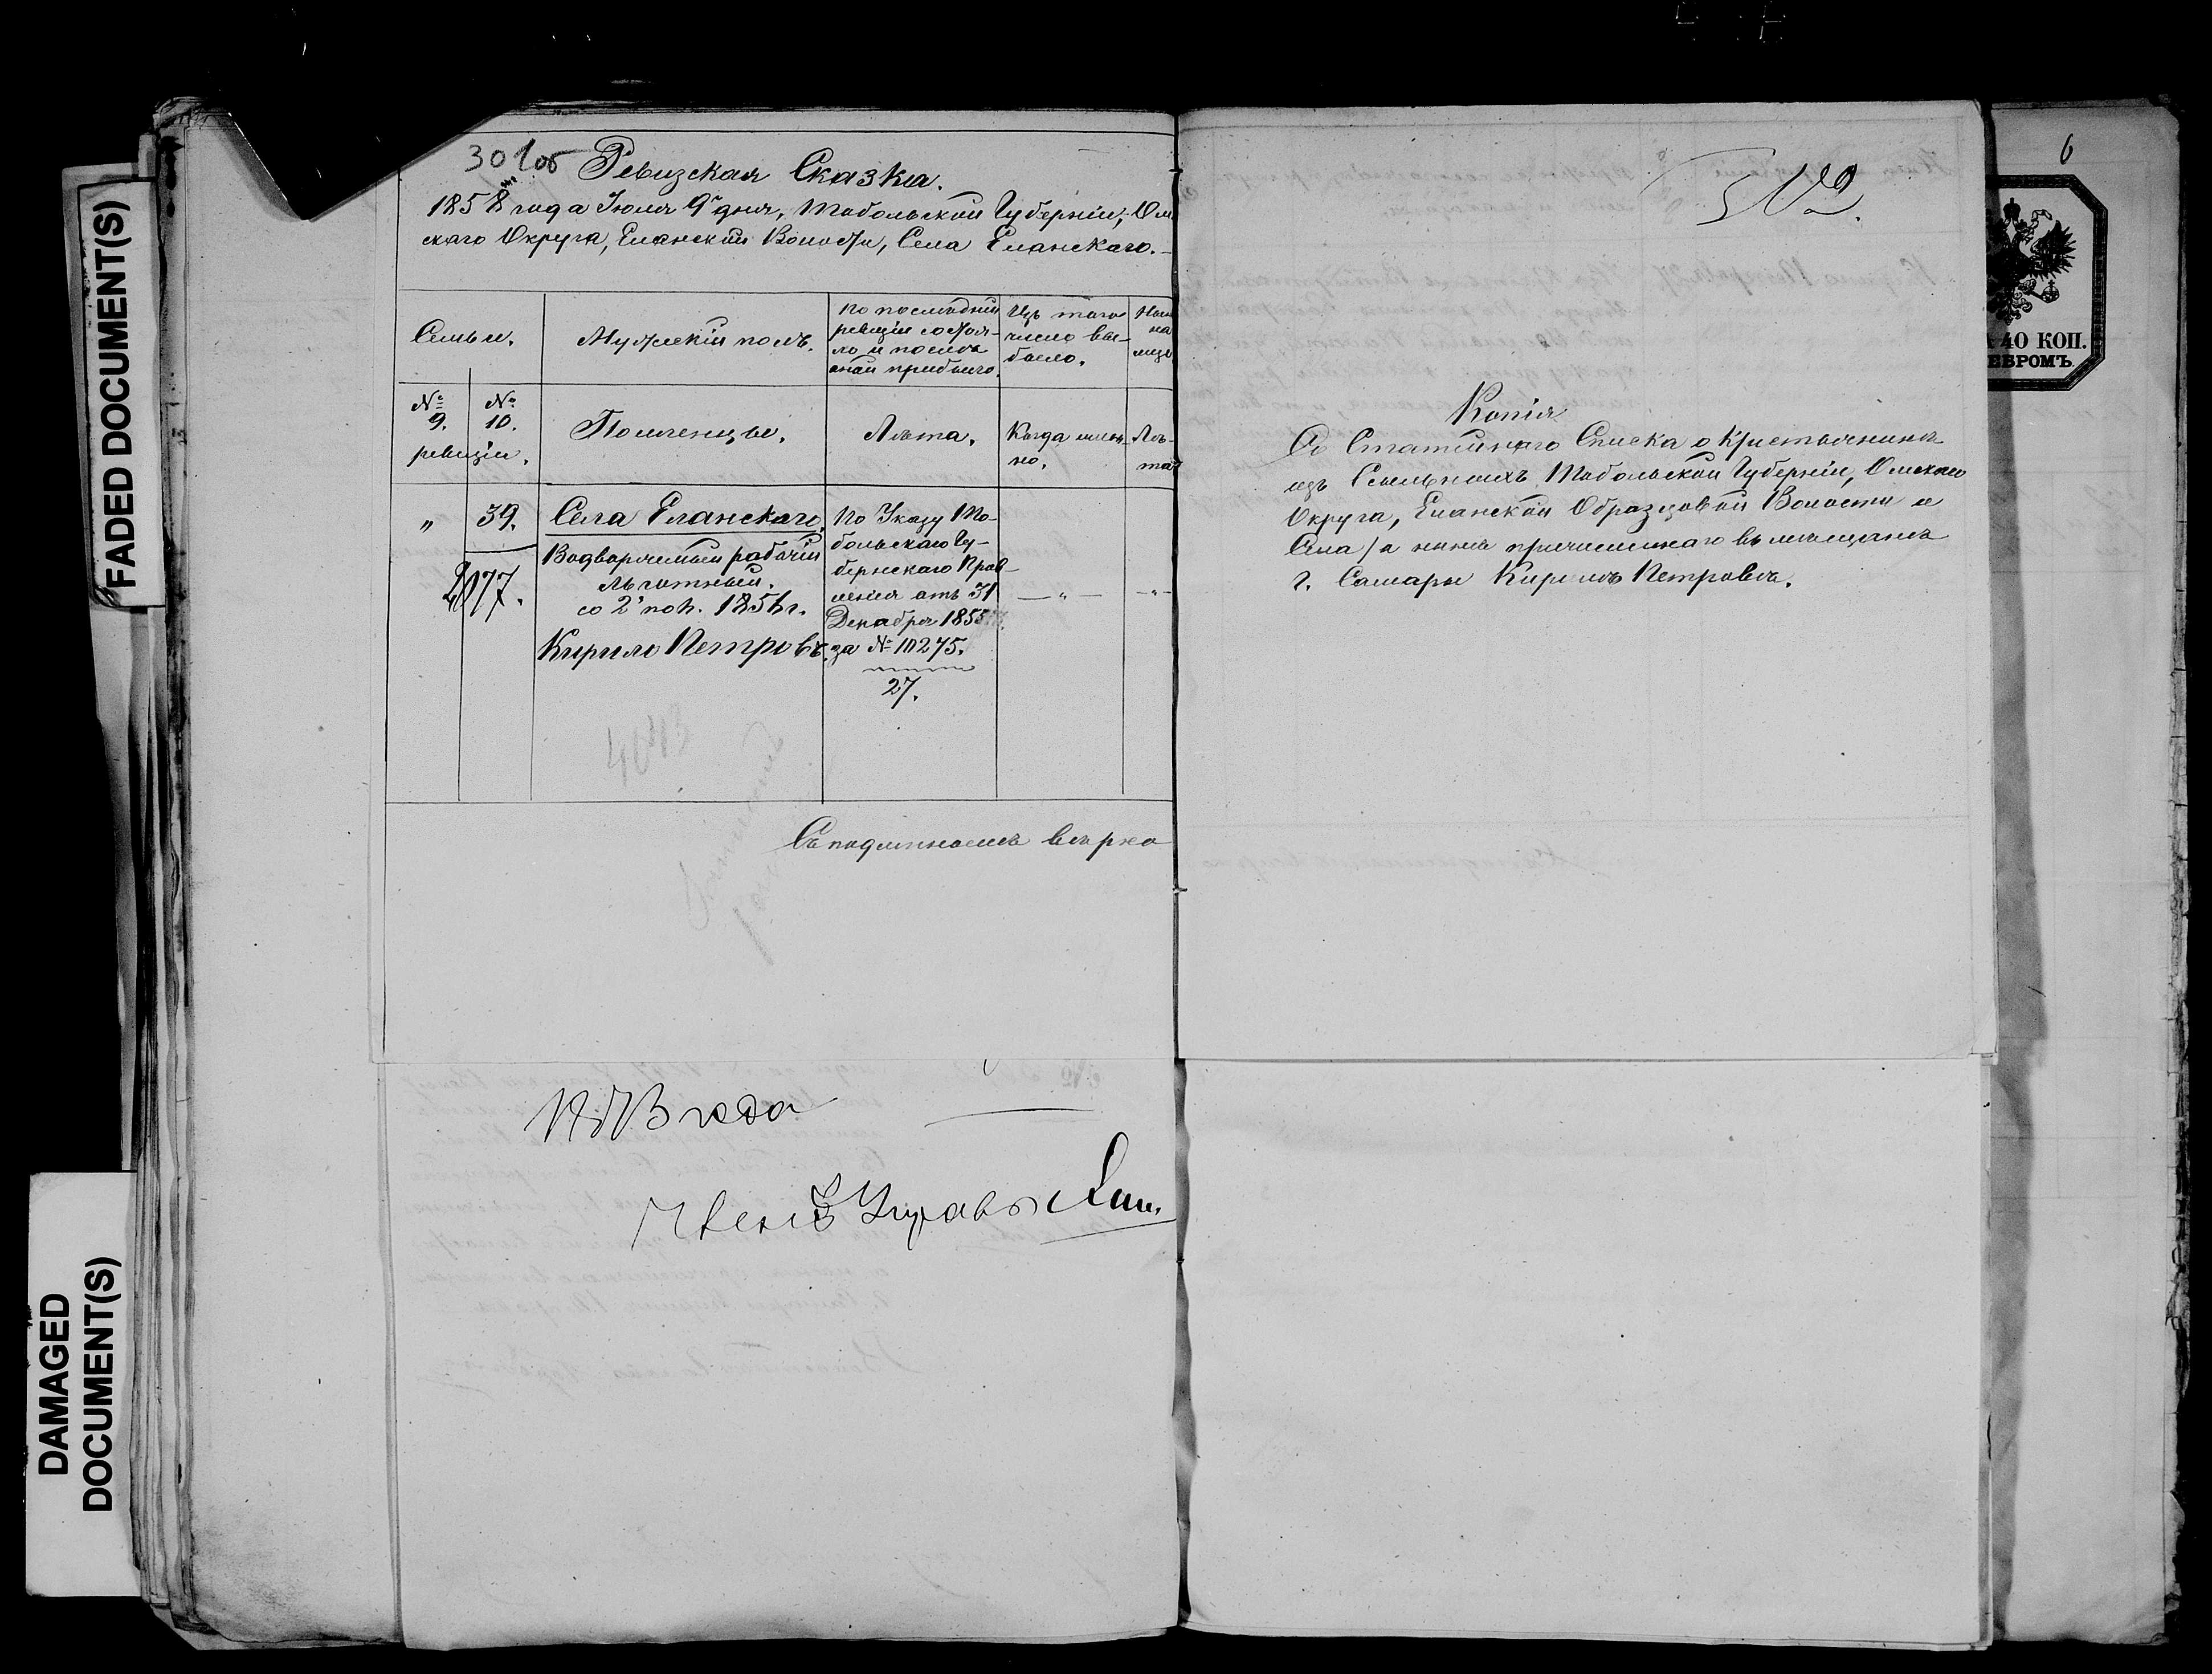 FADED DOCUMENT(S)
DAMAGED
DOCUMENT(S)
301об
Ревизская Сказка.
1858 года Июля 9 дня, Тобольской Губерніи, Ом
скаго Округа, Еланской Волости, Села Еланскаго.
Семьи.
Мужескій полъ.
По последней
ревизіи состоя-
ло и после
оной прибыло.
Изъ того
числа вы-
было.
Ны
на
лицо
№ 9.
№ 10.
ревизіи.
Поселенцы.
Лѣта.
Когда имен-
но.
Лѣ-
та
„
39.
2077.
Села Еланскаго,
Водворяемый рабочій
льготный.
со 2й пол. 1856 г.
Кирило Петровъ.
По Указу То-
больскаго Гу-
бернскаго Прав-
ленія отъ 31
Декабря 1855
за № 10275.
27.
— „ —
- „ -
4043
Съ подлиннымъ вѣрно
года
Членъ Управы
6
40 КОП.
ЕБРОМЪ.
№
Копія
Со Статейнаго Списка о Крестьянинѣ
изъ Ссыльныхъ Тобольской Губерніи, Омскаго
Округа, Еланской Образцовой Волости и
Села / а нынѣ причисленнаго въ мещане
г. Самары Кирилѣ Петровѣ.